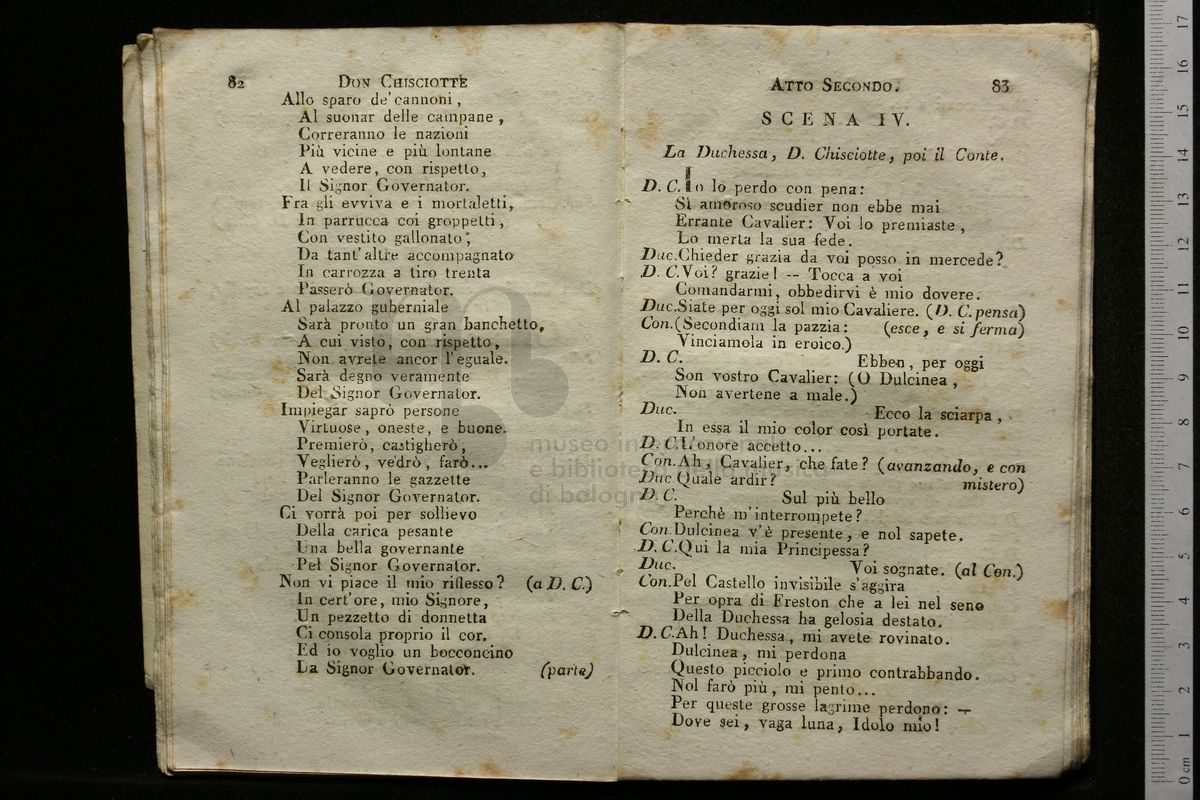 82 DON CHISCIOTTE
Allo sparo de' cannoni,
Al suonar delle campane,
Correranno le nazioni
Più vicine e più lontane
A vedere, con rispetto,
Il Signor Governator.
Fra gli evviva e i mortaletti,
In parrucca coi groppetti,
Con vestito gallonato;
Da tant' altre accompagnato
In carrozza a tiro trenta
Passerò Governator.
Al palazzo guberniale
Sarà pronto un gran banchetto,
A cui visto, con rispetto,
Non avrete ancor l'eguale.
Sarà degno veramente
Del Signor Governator.
Impiegar saprò persone
Virtuose, oneste, e buone.
Premierò, castigherò,
Veglierò, vedrò, farò...
Parleranno le gazzette
Del Signor Governator.
Ci vorrà poi per sollievo
Della carica pesante
Una bella governante
Pel Signor Governator.
Non vi piace il mio riflesso? (a D. C.)
In cert'ore, mio Signore,
Un pezzetto di donnetta
Ci consola proprio il cor.
Ed io voglio un bocconcino
Da Signor Governator. (parte)
ATTO SECONDO. 83
SCENA IV.
La Duchessa, D. Chisciotte, poi il Conte.
D. C. Io lo perdo con pena:
Sì amoroso scudier non ebbe mai
Errante Cavalier: Voi lo premiaste,
Lo merta la sua fede.
Duc. Chieder grazia da voi posso in mercede?
D. C. Voi? grazie! -- Tocca a voi
Comandarmi, obbedirvi è mio dovere.
Duc. Siate per oggi sol mio Cavaliere. (D. C. pensa)
Con. (Secondiam la pazzia: (esce, e si ferma)
Vinciamola in eroico.)
D. C. Ebben, per oggi
Son vostro Cavalier: (O Dulcinea,
Non avertene a male.)
Duc. Ecco la sciarpa,
In essa il mio color così portate.
D. C. L'onore accetto...
Con. Ah, Cavalier, che fate? (avanzando, e con
Duc Quale ardir? mistero)
D. C. Sul più bello
Perchè m'interrompete?
Con. Dulcinea v'è presente, e nol sapete.
D. C. Qui la mia Principessa?
Duc. Voi sognate. (al Con.)
Con. Pel Castello invisibile s'aggira
Per opra di Freston che a lei nel seno
Della Duchessa ha gelosia destato.
D. C. Ah! Duchessa, mi avete rovinato.
Dulcinea, mi perdona
Questo picciolo e primo contrabbando.
Nol farò più, mi pento...
Per queste grosse lagrime perdono: --
Dove sei, vaga luna, Idolo mio!